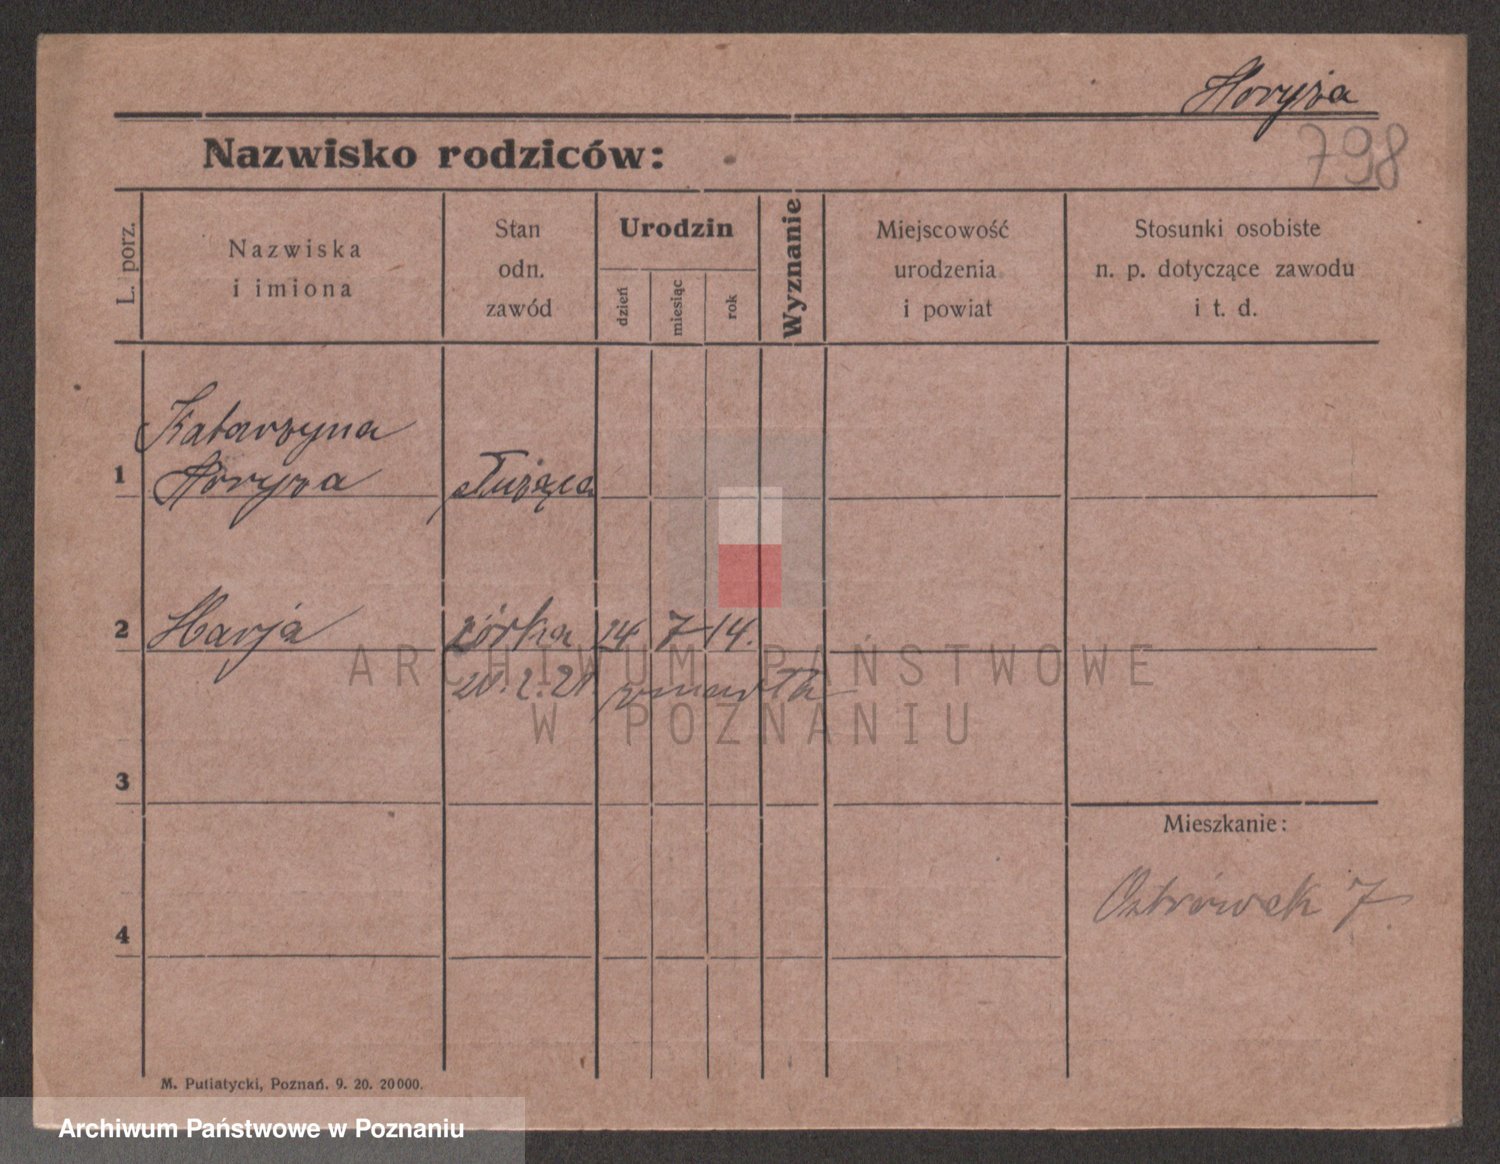 Horyza
798
Nazwisko rodziców:
L. porz.
Nazwiska
i imiona
Stan
odn.
zawód
Urodzin
dzień
miesiąc
rok
Wyznanie
Miejscowość
urodzenia
i powiat
Stosunki osobiste
n. p. dotyczące zawodu
i t. d.
Katarzyna
1 Horyza służąca
2 Marja córka 24 7 14.
20.2.21 zmarła
3
Mieszkanie:
Ostrówek 7.
4
M. Putiatycki, Poznań. 9. 20. 20000.
ARCHIWUM PAŃSTWOWE
W POZNANIU
Archiwum Państwowe w Poznaniu